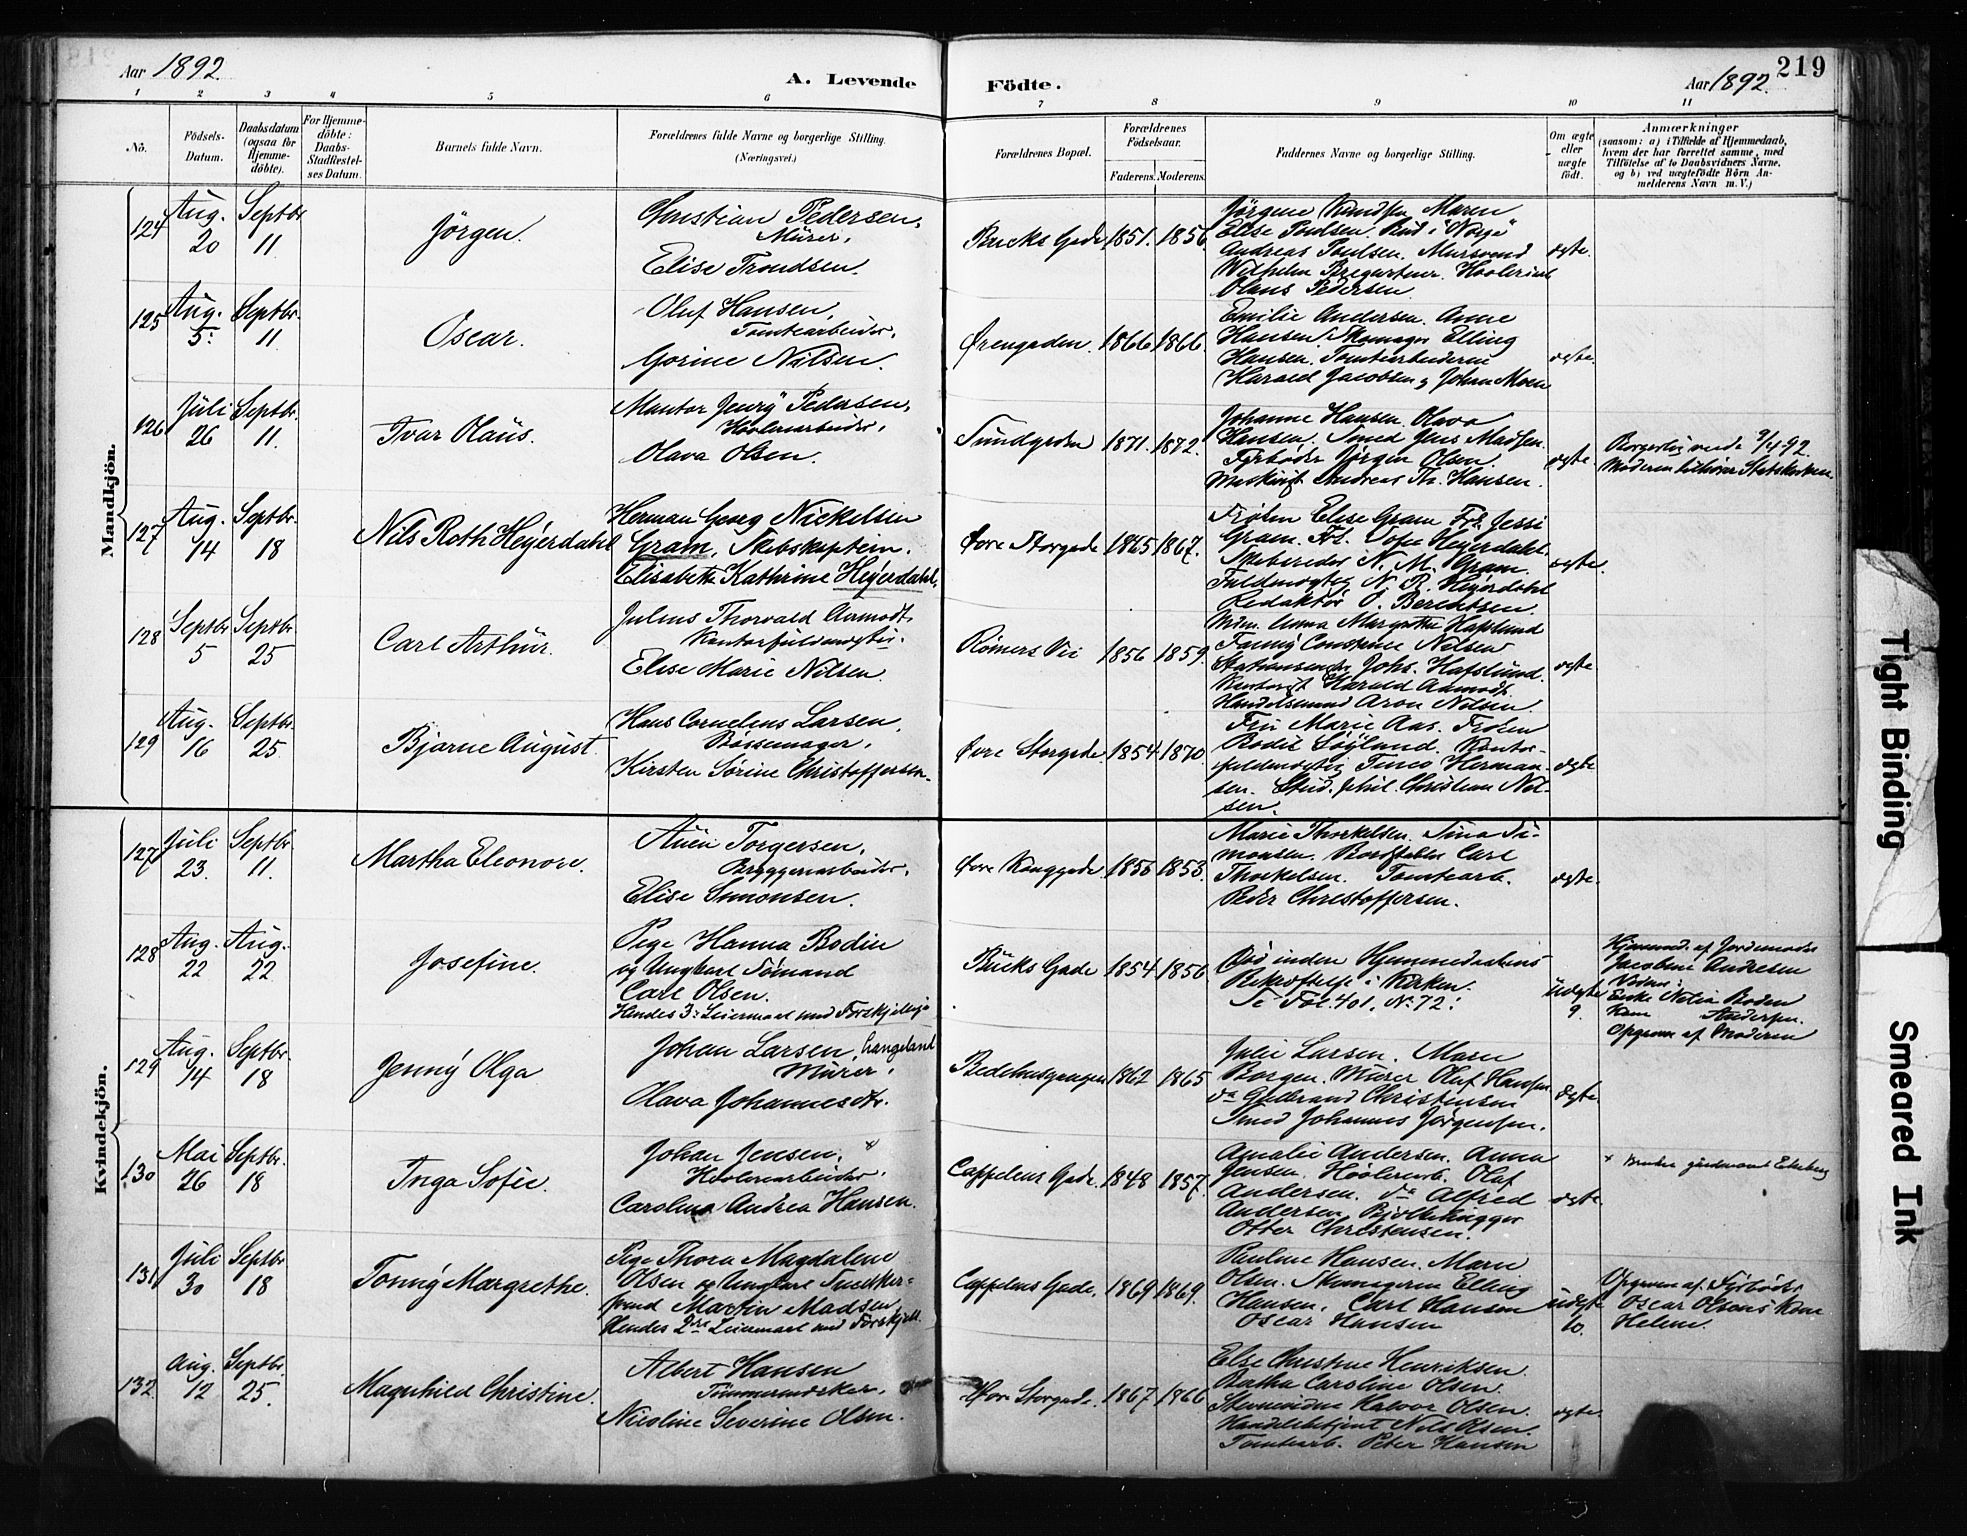 Aar 1892.
A. Levende
Födte.
Aar 1892.
219
1 2 3 4 5 6 7 8 9 10 11
No.
Födsels-
Datum.
Daabsdatum
(ogsaa for
Hjemme-
döbte).
For Hjemme-
döbte:
Daabs-
Stadfæstel-
ses Datum.
Barnets fulde Navn.
Forældrenes fulde Navne og borgerlige Stilling.
(Næringsvei.)
Forældrenes Bopæl.
Forældrenes
Födselsaar.
Faderens. Moderens.
Faddernes Navne og borgerlige Stilling.
Om ægte
eller
uægte
födt.
Anmærkninger
(saasom: a) i Tilfælde af Hjemmedaab,
hvem der har forrettet samme, med
Tilföielse af to Daabsvidners Navne,
og b) ved uægtefödte Börn An-
melderens Navn m. V.)
Mandkjön.
124
Aug.
20
Septbr
11
Jörgen.
Christian Pedersen,
Murer,
Elise Trondsen.
Bucks Gade
1851. 1856.
Jörgine Knudsen Maren
Elise Poulsen.
Andreas Poulsen. Mursvend
Wilhelm
Olaus Pedersen
ægte.
125
Aug.
5.
Septbr.
11
Oscar.
Oluf Hansen,
Tomtearbeider,
Gorine Nilsen.
Örengaden.
1866 1866.
Emilie Andersen. Anne
Hansen. Skomager Elling
Hansen. Tomtearbeiderne
Harald Jacobsen & Johan Moen
ægte.
126
Juli
26
Septbr.
11.
Ivar Olaus.
Pedersen,
Høvleriarbeider,
Olava Olsen.
Sundgaden
1871. 1872.
Johanne Hansen. Olava
Hansen. Smed Jens Madsen.
Fyrböder Jörgen Olsen.
Maskinist Andreas Th. Hansen.
ægte.
Borgerlig viede 9/4 92.
Moderen tilhører Statskirken
127
Aug.
14
Septbr.
18
Nils Roth Heyerdahl
Herman Georg Nickelsen
Gram, Skibskaptein.
Elisabeth Kathrine Heyerdahl.
Øvre Storgade
1865 1867.
Frøken Elise Gram Frk. Jessi
Gram. Frk. Sofie Heyerdahl.
Skibsreder N. M. Gram.
Fuldmægtig N. R. Heyerdahl
Redaktör O. Berentsen.
ægte.
128
Septbr
5
Septbr
25
Carl Arthur.
Julius Thorvald Aamodt.
Kontorfuldmægtig.
Elise Marie Nilsen.
Rømers Vei
1856 1859.
Mdm. Anna Margrethe Hafslund
Fanny Constance Nilsen
Johs. Hafslund.
Kontorist Harald Aamodt.
Handelsmand Aron Nilsen
ægte
129
Aug.
16
Septbr.
25
Bjarne August.
Hans Cornelius Larsen,
Bøssemager,
Kirsten Sørine Christoffersen.
Øvre Storgade.
1854 1870.
Fru Marie Aas. Frøken
Bodil Kontor-
fuldmægtig Herman-
sen. Stud. phil. Christian Nil-
sen.
ægte
Kvindekjön.
127
Juli
23.
Septbr.
11.
Martha Eleonore.
Torgersen,
Bryggeriarbeider,
Elise Simonsen.
Øvre
1853.
Marie Thorkelsen. Tina Si-
monsen. Carl
Thorkelsen. Tomtearb.
Peder Christoffersen.
ægte.
128
Aug.
22
Aug.
22
Josefine.
Pige Hanna Bodin
og Ungkarl Sömand
Carl Olsen.
Hendes 3 Leiermaal med Forskjellige
Bucks Gade
1854 1856
Død inden Hjemmedaabens
Bekræftelse i Kirken.
Se Fol. 401, No. 72.
uægte
9.
Hjemmed. af Jordemoder
Jacobine Andresen
Vidner:
Enke Boden
Kone Andersen.
Opgivn. af Moderen
129
Aug.
14
Septbr.
18
Jenny Olga
Johan Larsen, Langeland
Murer,
Olava Johannesdtr.
Bedehusgangen
1862 1865
Julie Larsen. Maren
Borgen. Murer Oluf Hansen.
do Gulbrand Christensen
Smed Johannes Jørgensen.
ægte.
130
Mai
26
Septbr.
18
Inga Sofie.
Johan Jensen, ×
Høvleriarbeider,
Carolina Andrea Hansen.
Cappelens Gade.
1848 1857.
Amalie Andersen. Anna
Jensen. Høvleriarb. Olaf
Andersen. do Alfred
Andersen. Bjelkehugger
Otter Christensen.
ægte.
131
Juli
30
Septbr
18
Tonny Margrethe.
Pige Thora Magdalene
Olsen og Ungkarl Snedker-
svend Martin Madsen
Hendes 2det Leiermaal med Forskjell.
Cappelens Gade.
1869 1869.
Pauline Hansen. Maren
Olsen. Skomagerne Elling
Hansen. Carl Hansen
Oscar Hansen
uægte
10.
Opgiven af. Fyrböder
Oscar Olsens Kone
Helene.
132.
Aug.
12
Septbr.
25.
Magnhild Christine.
Albert Hansen
Tömmermerker.
Nicoline Severine Olsen.
Øvre Storgade.
1867 1866
Else Christine Henriksen.
Bertha Caroline Olsen.
Halvor Olsen.
Handelsbetjent Nils Olsen.
Tomtearb. Peter Hansen
ægte.
Tight Binding
Smeared Ink